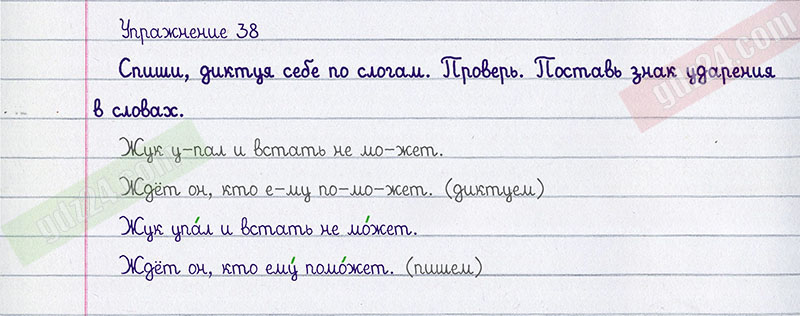 Упражнение 38
Спиши, диктуя себе по слогам. Проверь. Поставь знак ударения
в словах.
Жук у-пал и встать не мо-жет.
Ждёт он, кто е-му по-мо-жет. (диктуем)
Жук упа́л и встать не мо́жет.
Ждёт он, кто ему́ помо́жет. (пишем)
gdz24.com
gdz24.com